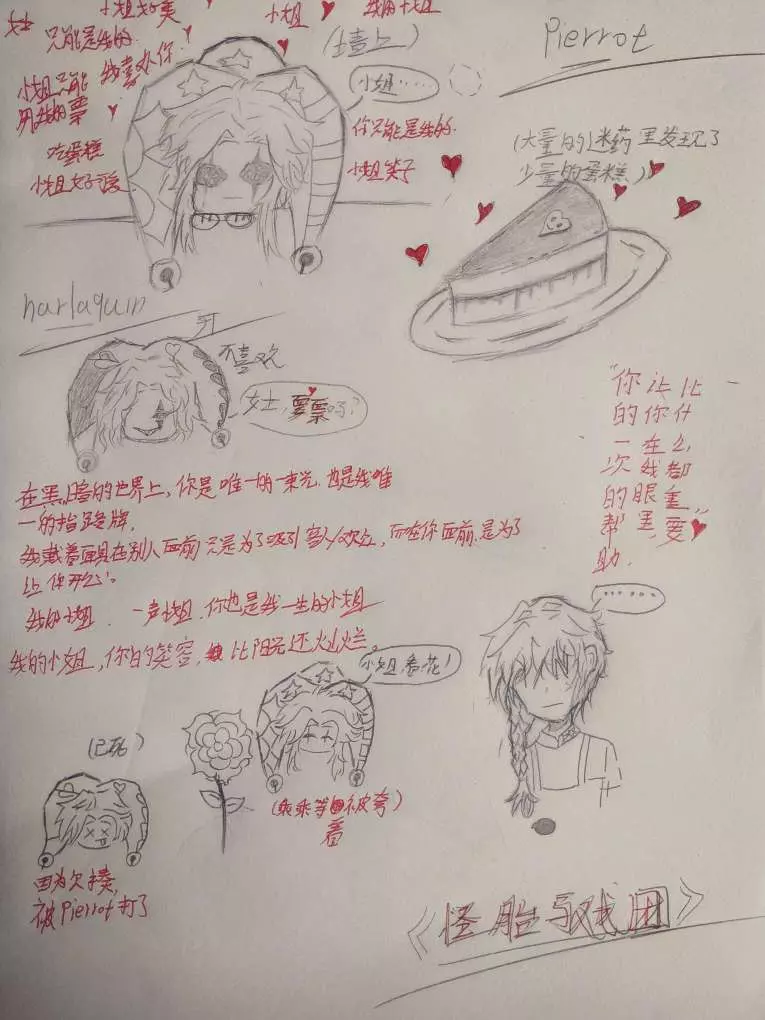 小姐好美
小姐
我的小姐
女士
只能是我的
我喜欢你
小姐只能
用我的票
吃蛋糕
小姐好
(墙上)
小姐……
你只能是我的
小姐笑了
Pierrot
(大量的迷药里发现了
少量的蛋糕)
harlaquin
不喜欢
女士,要票吗?
在黑暗的世界上,你是唯一的一束光,也是我唯
一的指路牌.
我戴着面具在别人面前只是为了吸引客人欢心,而在你面前,是为了
让你开心.
我的小姐.一声小姐.你也是我一生的小姐
我的小姐,你的笑容,比阳光还灿烂
"你让比一
的你什
一在么
次我都
的眼重
帮里,要"
助.
……
小姐看花!
(已死)
(乖乖等着被夸)
因为欠揍,
被Pierrot打了
《怪胎马戏团》